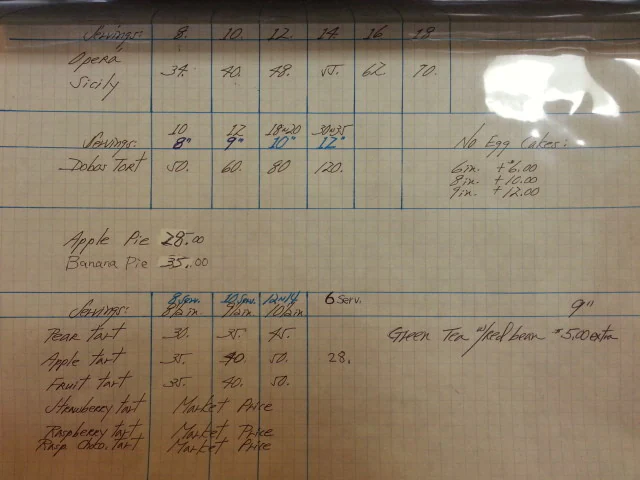 Servings: 8. 10. 12. 14 16 18
Opera
&
Sicily 34. 40. 48. 55. 62 70.
10 12 18 to 20 30 to 35
Servings: 8" 9" 10" 12" No Egg Cakes:
Dobos Tort 50. 60. 80 120. 6in. +$6.00
8in. +10.00
9in. +12.00
Apple Pie 28.00
Banana Pie 35.00
8 Serv. 10 Serv. 12 to 14 6 Serv.
Servings: 8½in. 9½in. 10½in 9"
Pear tart 30. 35. 45. Green Tea w/red bean $5.00 extra
Apple tart 35. 40 50. 28.
Fruit tart 35. 40. 50.
Strawberry tart Market Price
Raspberry tart Market Price
Rasp Choco. tart Market Price